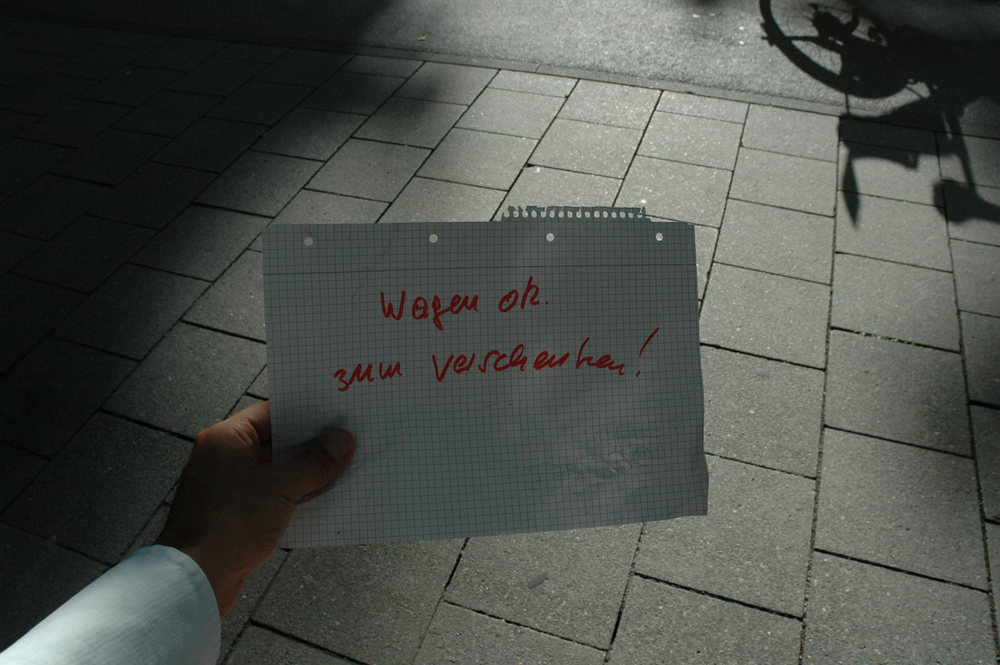 Wagen ok.
zum verschenken!